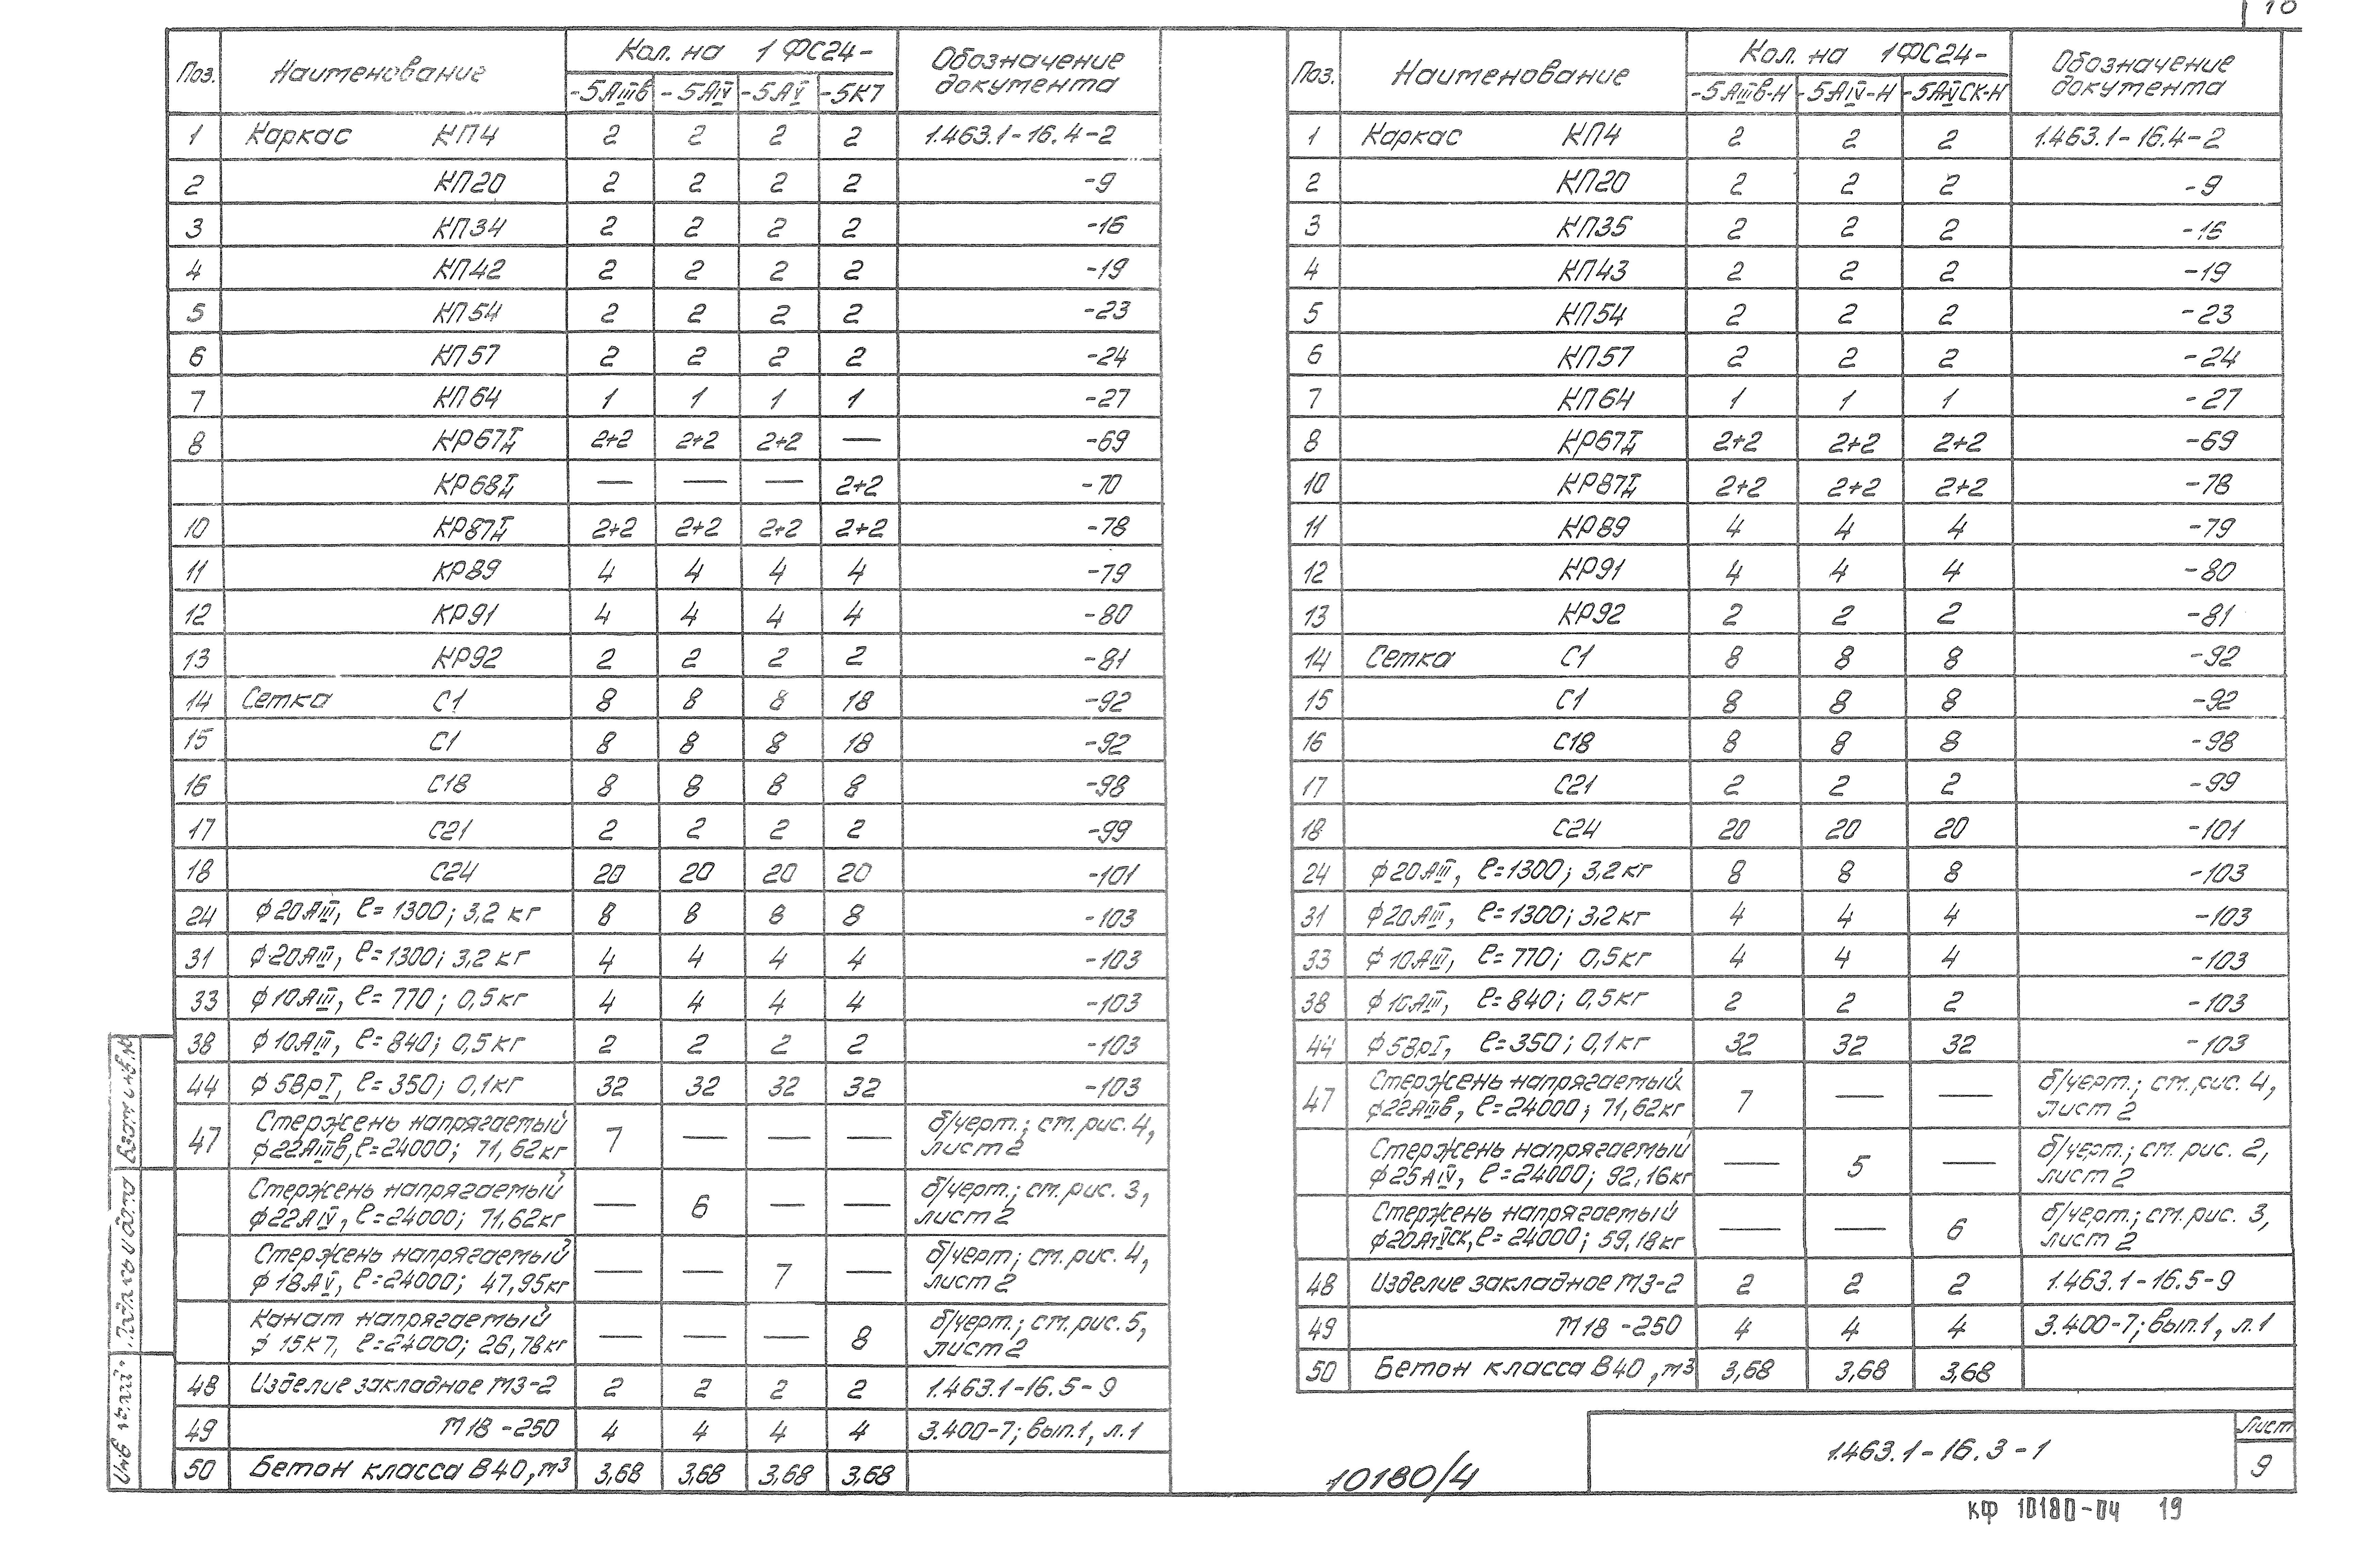 10
Поз. Наименование Кол. на 1ФС24- Обозначение документа
-5АIIIв -5АIV -5АV -5К7
1 Каркас КП4 2 2 2 2 1.463.1-16.4-2
2 КП20 2 2 2 2 -9
3 КП34 2 2 2 2 -16
4 КП42 2 2 2 2 -19
5 КП54 2 2 2 2 -23
6 КП57 2 2 2 2 -24
7 КП64 1 1 1 1 -27
8 КР67Т/Н 2+2 2+2 2+2 — -69
КР68Т/Н — — — 2+2 -70
10 КР87Т/Н 2+2 2+2 2+2 2+2 -78
11 КР89 4 4 4 4 -79
12 КР91 4 4 4 4 -80
13 КР92 2 2 2 2 -81
14 Сетка С1 8 8 8 18 -92
15 С1 8 8 8 18 -92
16 С18 8 8 8 8 -98
17 С21 2 2 2 2 -99
18 С24 20 20 20 20 -101
24 ф20АIII, ℓ=1300; 3,2 кг 8 8 8 8 -103
31 ф20АIII, ℓ=1300; 3,2 кг 4 4 4 4 -103
33 ф10АIII, ℓ=770; 0,5кг 4 4 4 4 -103
38 ф10АIII, ℓ=840; 0,5кг 2 2 2 2 -103
44 ф5ВрI, ℓ=350; 0,1кг 32 32 32 32 -103
47 Стержень напрягаемый ф22АIIIв, ℓ=24000; 71,62кг 7 — — — б/черт.; см. рис. 4, лист 2
Стержень напрягаемый ф22АIV, ℓ=24000; 71,62кг — 6 — — б/черт.; см. рис. 3, лист 2
Стержень напрягаемый ф18АV, ℓ=24000; 47,95кг — — 7 — б/черт; см. рис. 4, лист 2
Канат напрягаемый ф15К7, ℓ=24000; 26,78кг — — — 8 б/черт.; см. рис. 5, лист 2
48 Изделие закладное М3-2 2 2 2 2 1.463.1-16.5-9
49 М18-250 4 4 4 4 3.400-7; вып.1, л.1
50 Бетон класса В40, м3 3,68 3,68 3,68 3,68
Поз. Наименование Кол. на 1ФС24- Обозначение документа
-5АIIIв-Н -5АIV-Н -5АIVСК-Н
1 Каркас КП4 2 2 2 1.463.1-16.4-2
2 КП20 2 2 2 -9
3 КП35 2 2 2 -16
4 КП43 2 2 2 -19
5 КП54 2 2 2 -23
6 КП57 2 2 2 -24
7 КП64 1 1 1 -27
8 КР67Т/Н 2+2 2+2 2+2 -69
10 КР87Т/Н 2+2 2+2 2+2 -78
11 КР89 4 4 4 -79
12 КР91 4 4 4 -80
13 КР92 2 2 2 -81
14 Сетка С1 8 8 8 -92
15 С1 8 8 8 -92
16 С18 8 8 8 -98
17 С21 2 2 2 -99
18 С24 20 20 20 -101
24 ф20АIII, ℓ=1300; 3,2кг 8 8 8 -103
31 ф20АIII, ℓ=1300; 3,2кг 4 4 4 -103
33 ф10АIII, ℓ=770; 0,5кг 4 4 4 -103
38 ф10АIII, ℓ=840; 0,5кг 2 2 2 -103
44 ф5ВрI, ℓ=350; 0,1кг 32 32 32 -103
47 Стержень напрягаемый ф22АIIIв, ℓ=24000; 71,62кг 7 — — б/черт.; см. рис. 4, лист 2
Стержень напрягаемый ф25АIV, ℓ=24000; 92,16кг — 5 — б/черт.; см. рис. 2, лист 2
Стержень напрягаемый ф20АтVСК, ℓ=24000; 59,18кг — — 6 б/черт.; см. рис. 3, лист 2
48 Изделие закладное М3-2 2 2 2 1.463.1-16.5-9
49 М18-250 4 4 4 3.400-7; вып.1, л.1
50 Бетон класса В40, м3 3,68 3,68 3,68
Взам. инв. №
Подпись и дата
Инв. № подл.
10180/4
1.463.1-16.3-1
Лист
9
КФ 10180-04 19